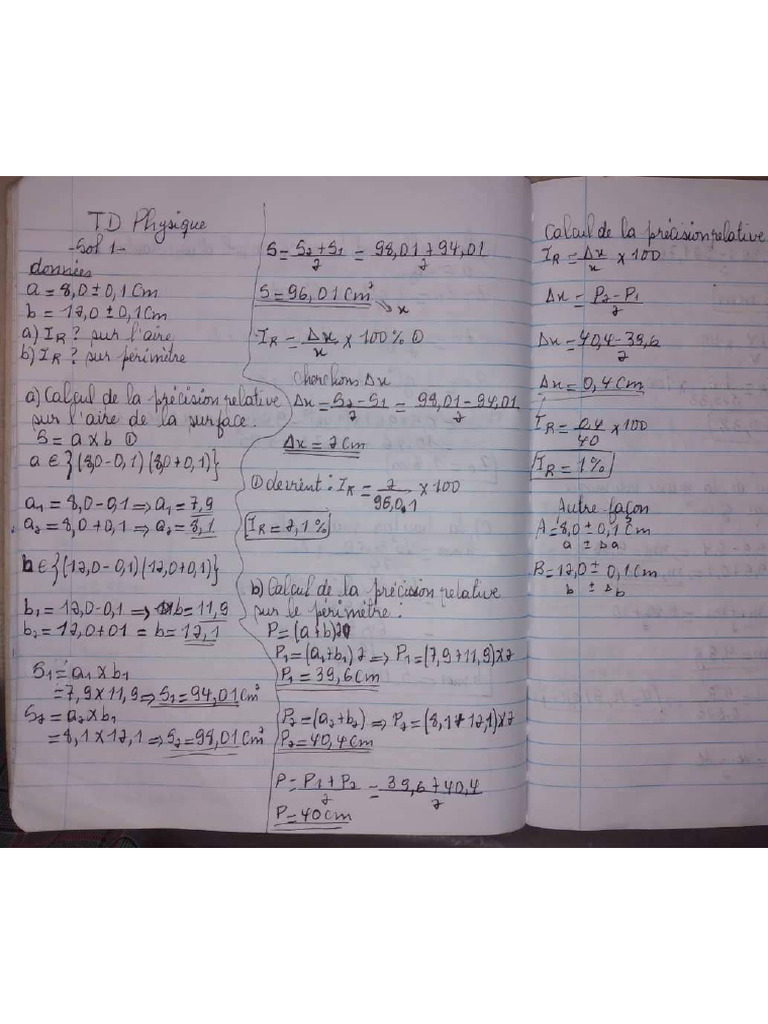 TD Physique
-Sol 1-
données
a = 8,0 ± 0,1 Cm
b = 12,0 ± 0,1 Cm
a) IR ? sur l'aire
b) IR ? sur périmètre
a) Calcul de la précision relative
sur l'aire de la surface.
S = a x b ①
a ∈ }(8,0-0,1) (8,0+0,1)}
a1 = 8,0-0,1 ⇒ a1 = 7,9
a2 = 8,0+0,1 ⇒ a2 = 8,1
b ∈ {(12,0-0,1) (12,0+0,1)}
b1 = 12,0-0,1 ⇒ b = 11,9
b2 = 12,0+01 = b = 12,1
S1 = a1 x b1
= 7,9 x 11,9 ⇒ S1 = 94,01 Cm²
S2 = a2 x b1
= 8,1 x 12,1 ⇒ S2 = 98,01 Cm²
S = S2 + S1 / 2 = 98,01 + 94,01 / 2
S = 96,01 Cm² → x
IR = Δx / x x 100 % ①
cherchons Δx
Δx = S2 - S1 / 2 = 98,01 - 94,01 / 2
Δx = 2 Cm
① devient : IR = 2 / 96,0.1 x 100
IR = 2,1 %
b) Calcul de la précision relative
sur le périmètre :
P = (a+b)2
P1 = (a1+b1) 2 ⇒ P1 = (7,9+11,9) x 2
P1 = 39,6 Cm
P2 = (a2+b2) ⇒ P2 = (8,1+12,1) x 2
P2 = 40,4 Cm
P = P1 + P2 / 2 = 39,6 + 40,4 / 2
P = 40 cm
Calcul de la précision relative
IR = Δx / x x 100
Δx = P2 - P1 / 2
Δx = 40,4 - 39,6 / 2
Δx = 0,4 Cm
IR = 0,4 / 40 x 100
IR = 1 %
Autre façon
A = 8,0 ± 0,1 Cm
a ± Δa
B = 12,0 ± 0,1 Cm
b ± Δb